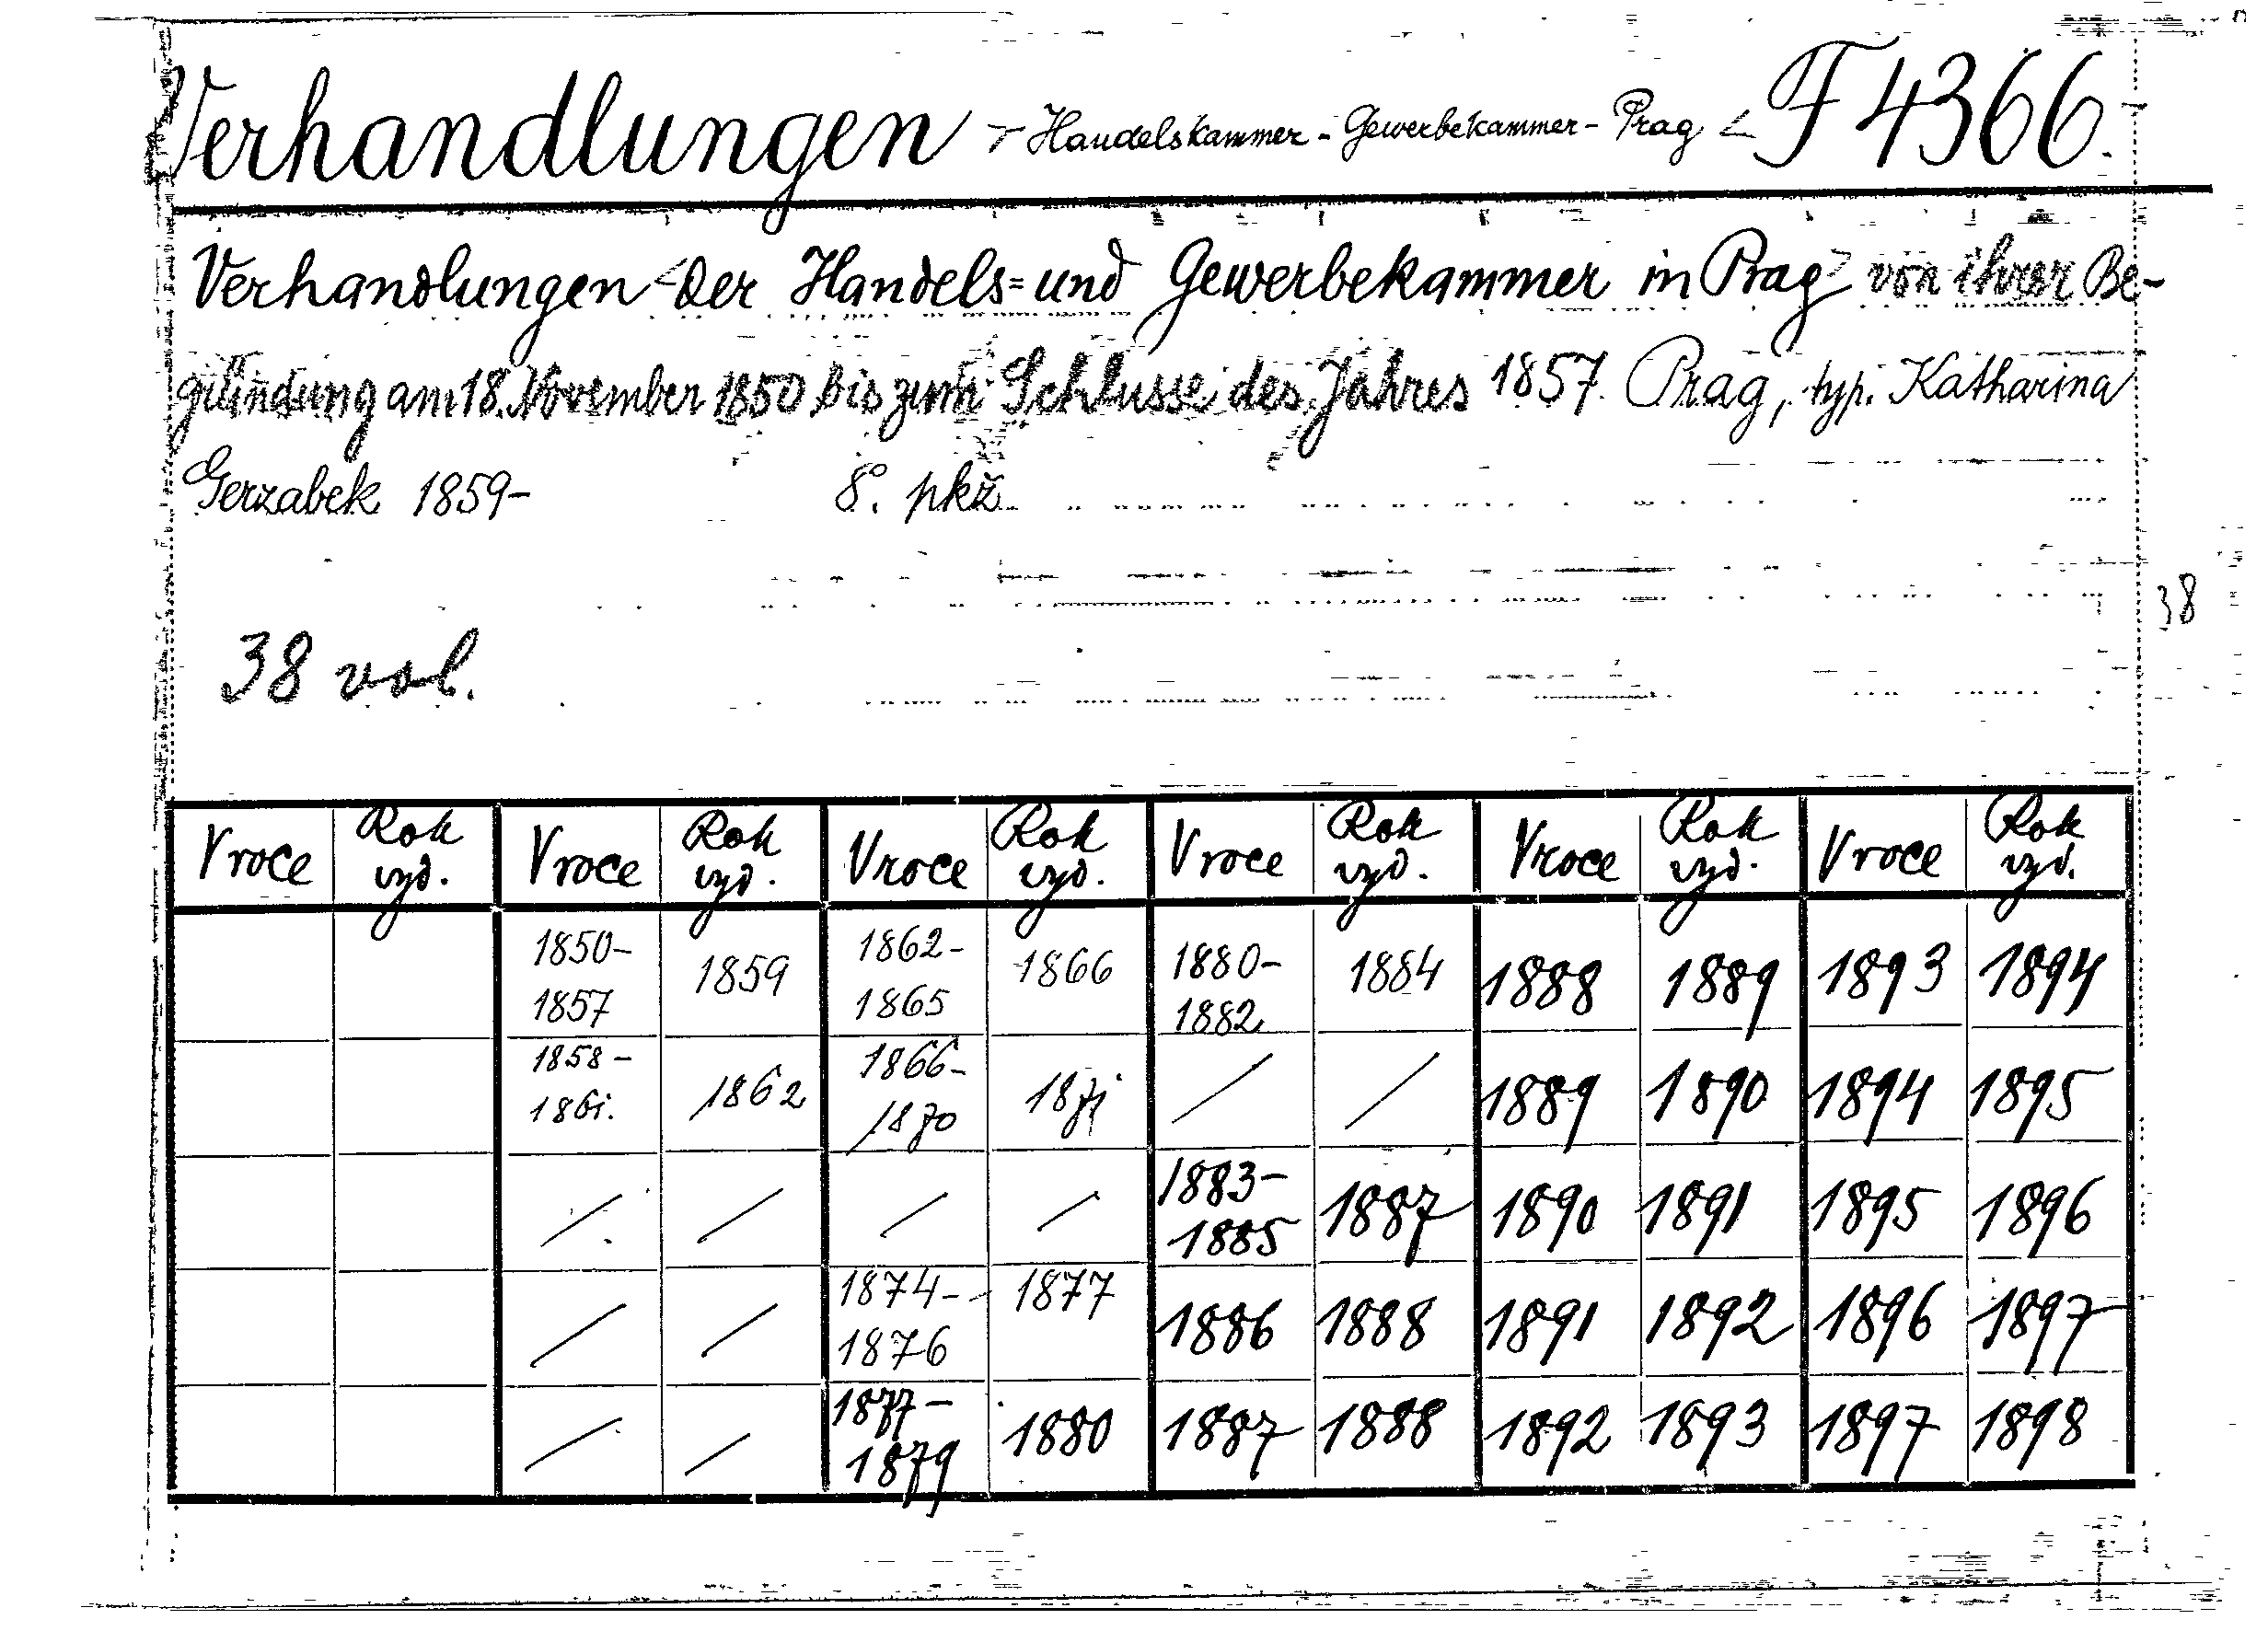 Verhandlungen > Handelskammer - Gewerbekammer - Prag < F 4366.
Verhandlungen <der Handels= und Gewerbekammer in Prag> von ihrer Be-
gründung am 18. November 1850 bis zum Schlusse des Jahres 1857. Prag, typ. Katharina
Gerzabek 1859- 8°. pkž
38
38 vol.
Vroce Rok vyd. Vroce Rok vyd. Vroce Rok vyd. Vroce Rok vyd. Vroce Rok vyd. Vroce Rok vyd.
1850-1857 1859 1862-1865 1866 1880-1882 1884 1888 1889 1893 1894
1858-1861. 1862 1866-1870 1871 / / 1889 1890 1894 1895
/ / / / 1883-1885 1887 1890 1891 1895 1896
/ / 1874-1876 1877 1886 1888 1891 1892 1896 1897
/ / 1877-1879 1880 1887 1888 1892 1893 1897 1898